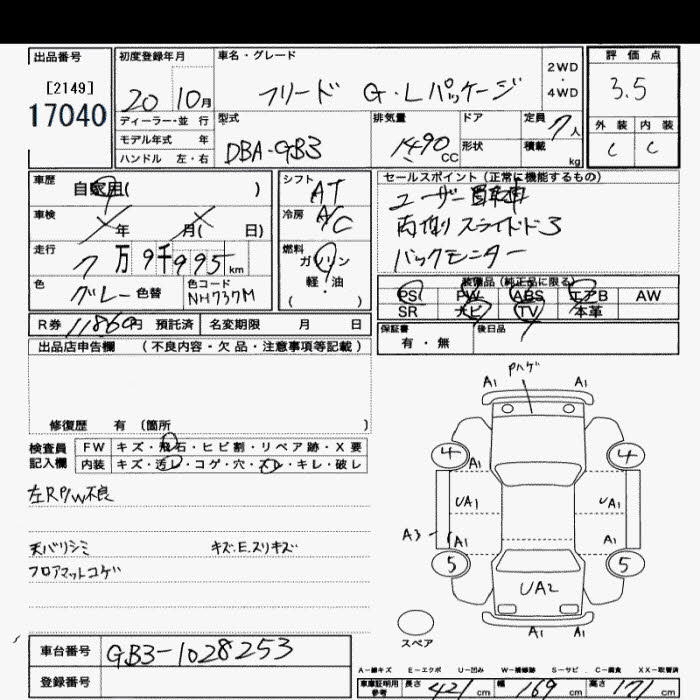 出品番号
[2149]
17040
初度登録年月
20 10月
車名・グレード
フリード G・Lパッケージ
2WD
・
4WD
評価点
3.5
外装 内装
C C
ディーラー・並行
モデル年式 年
ハンドル 左・右
型式
DBA-GB3
排気量
1490 CC
ドア
形状
定員
7人
積載
kg
車歴
自家用( )
車検
年 月( 日)
走行
7万9千995km
色
グレー 色替
色コード
NH737M
シフト
AT
冷房
A/C
燃料
ガソリン
軽・油
( )
セールスポイント (正常に機能するもの)
ユーザー買取車
両側スライドドア
バックモニター
装備品 (純正品に限る)
PS PW ABS エアB AW
SR ナビ TV 本革
R券 11860円 預託済 名変期限 月 日
保証書
有・無
後日品
出品店申告欄 (不良内容・欠品・注意事項等記載)
修復歴 有 (箇所 )
検査員
記入欄
FW キズ・飛石・ヒビ割・リペア跡・X要
内装 キズ・汚レ・コゲ・穴・スレ・キレ・破レ
左RP/W不良
天バリシミ キズ.E.スリキズ
フロアマットコゲ
Pハゲ
A1 A1
4 4
A1
UA1 UA1
A3 A1 A1
5 5
UA2
A1 A1
スペア
車台番号
GB3-1028253
登録番号
A-線キズ E-エクボ U-凹み W-補修跡 S-サビ C-腐食 XX-取替済
車庫証明用
参考
長さ 421 cm 幅 169 cm 高さ 171 cm